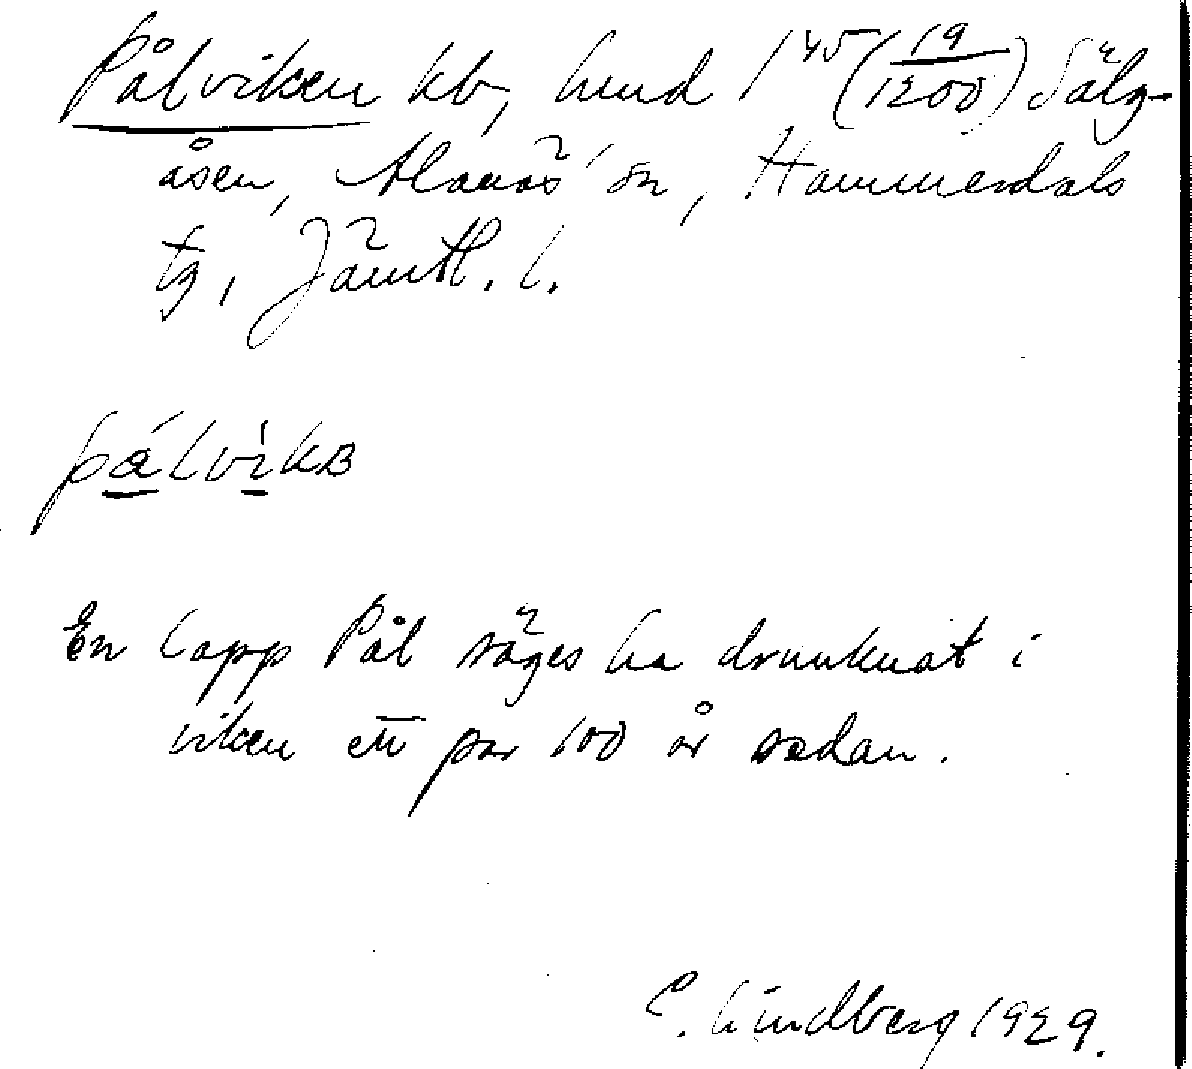 Pålviken kb, hmd 1⁴⁵ (19/1200) Sälg-
åsen, Alanäs sn, Hammerdals
tg, Jämtl. l.
pálvìkʙ
En lapp Pål säges ha drunknat i
viken ett par 100 år sedan.
C. Lindberg 1929.